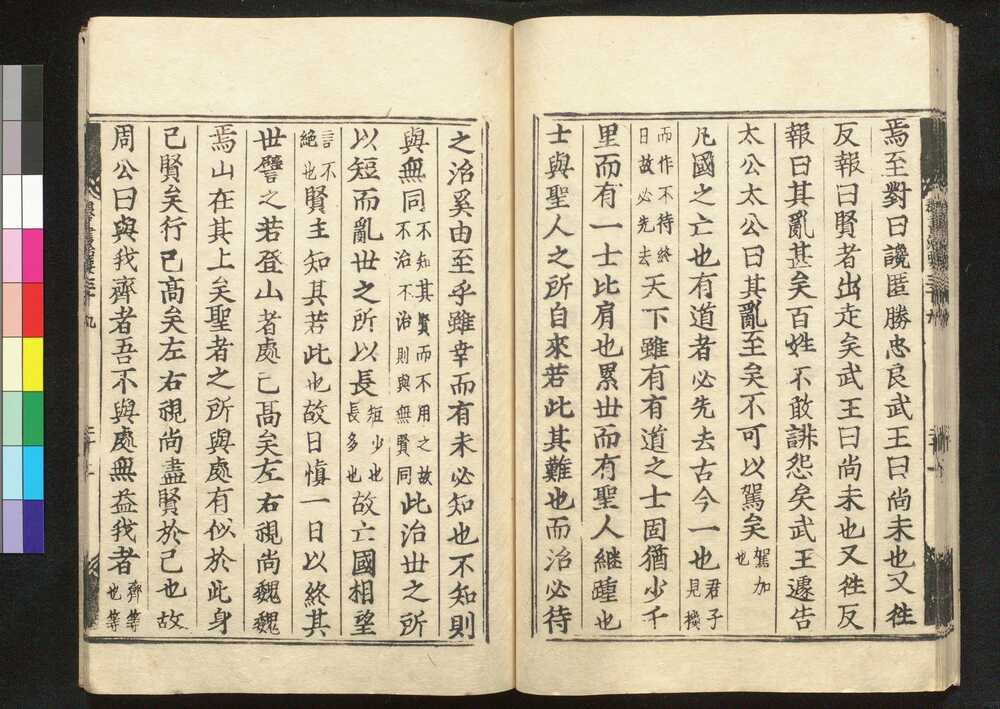 焉至對曰讒匿勝忠良武王曰尚未也又徃
反報曰賢者出走矣武王曰尚未也又徃反
報曰其亂甚矣百姓不敢誹怨矣武王遽告
太公太公曰其亂至矣不可以駕矣駕加也
凡國之亡也有道者必先去古今一也君子見機
而作不待終日故必先去天下雖有有道之士固猶少千
里而有一士比肩也累世而有聖人継踵也
士與聖人之所自來若此其難也而治必待
之治奚由至乎雖幸而有未必知也不知則
與無同不知其賢而不用之故不治不治則與無賢同此治世之所
以短而亂世之所以長短少也長多也故亡國相望
言不絶也賢主知其若此也故日慎一日以終其
世譬之若登山者處已高矣左右視尚魏魏
焉山在其上矣聖者之所與處有似於此身
已賢矣行已高矣左右視尚盡賢於己也故
周公曰與我齊者吾不與處無益我者齊等也等